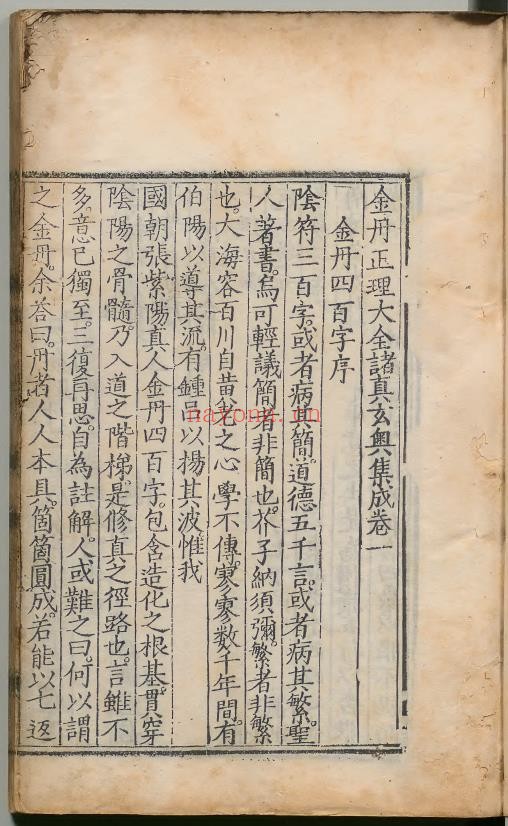 金丹正理大全諸真玄奧集成卷一
金丹四百字序
陰符三百字。或者病其簡。道德五千言。或者病其繁。聖
人著書。烏可輕議簡者非簡也。芥子納須彌。繁者非繁
也。大海容百川自昔之心學不傳。寥寥數千年間。有
伯陽以導其流。有鍾呂以揚其波惟我
國朝張紫陽真人金丹四百字。包含造化之根基。貫穿
陰陽之骨髓。乃入道之階梯。是修真之徑路也。言雖不
多。意已獨至。三復再思。自為註解。人或難之曰。何以謂
之金丹。余答曰。丹者人人本具。箇箇圓成。若能以七返
nayona.cn